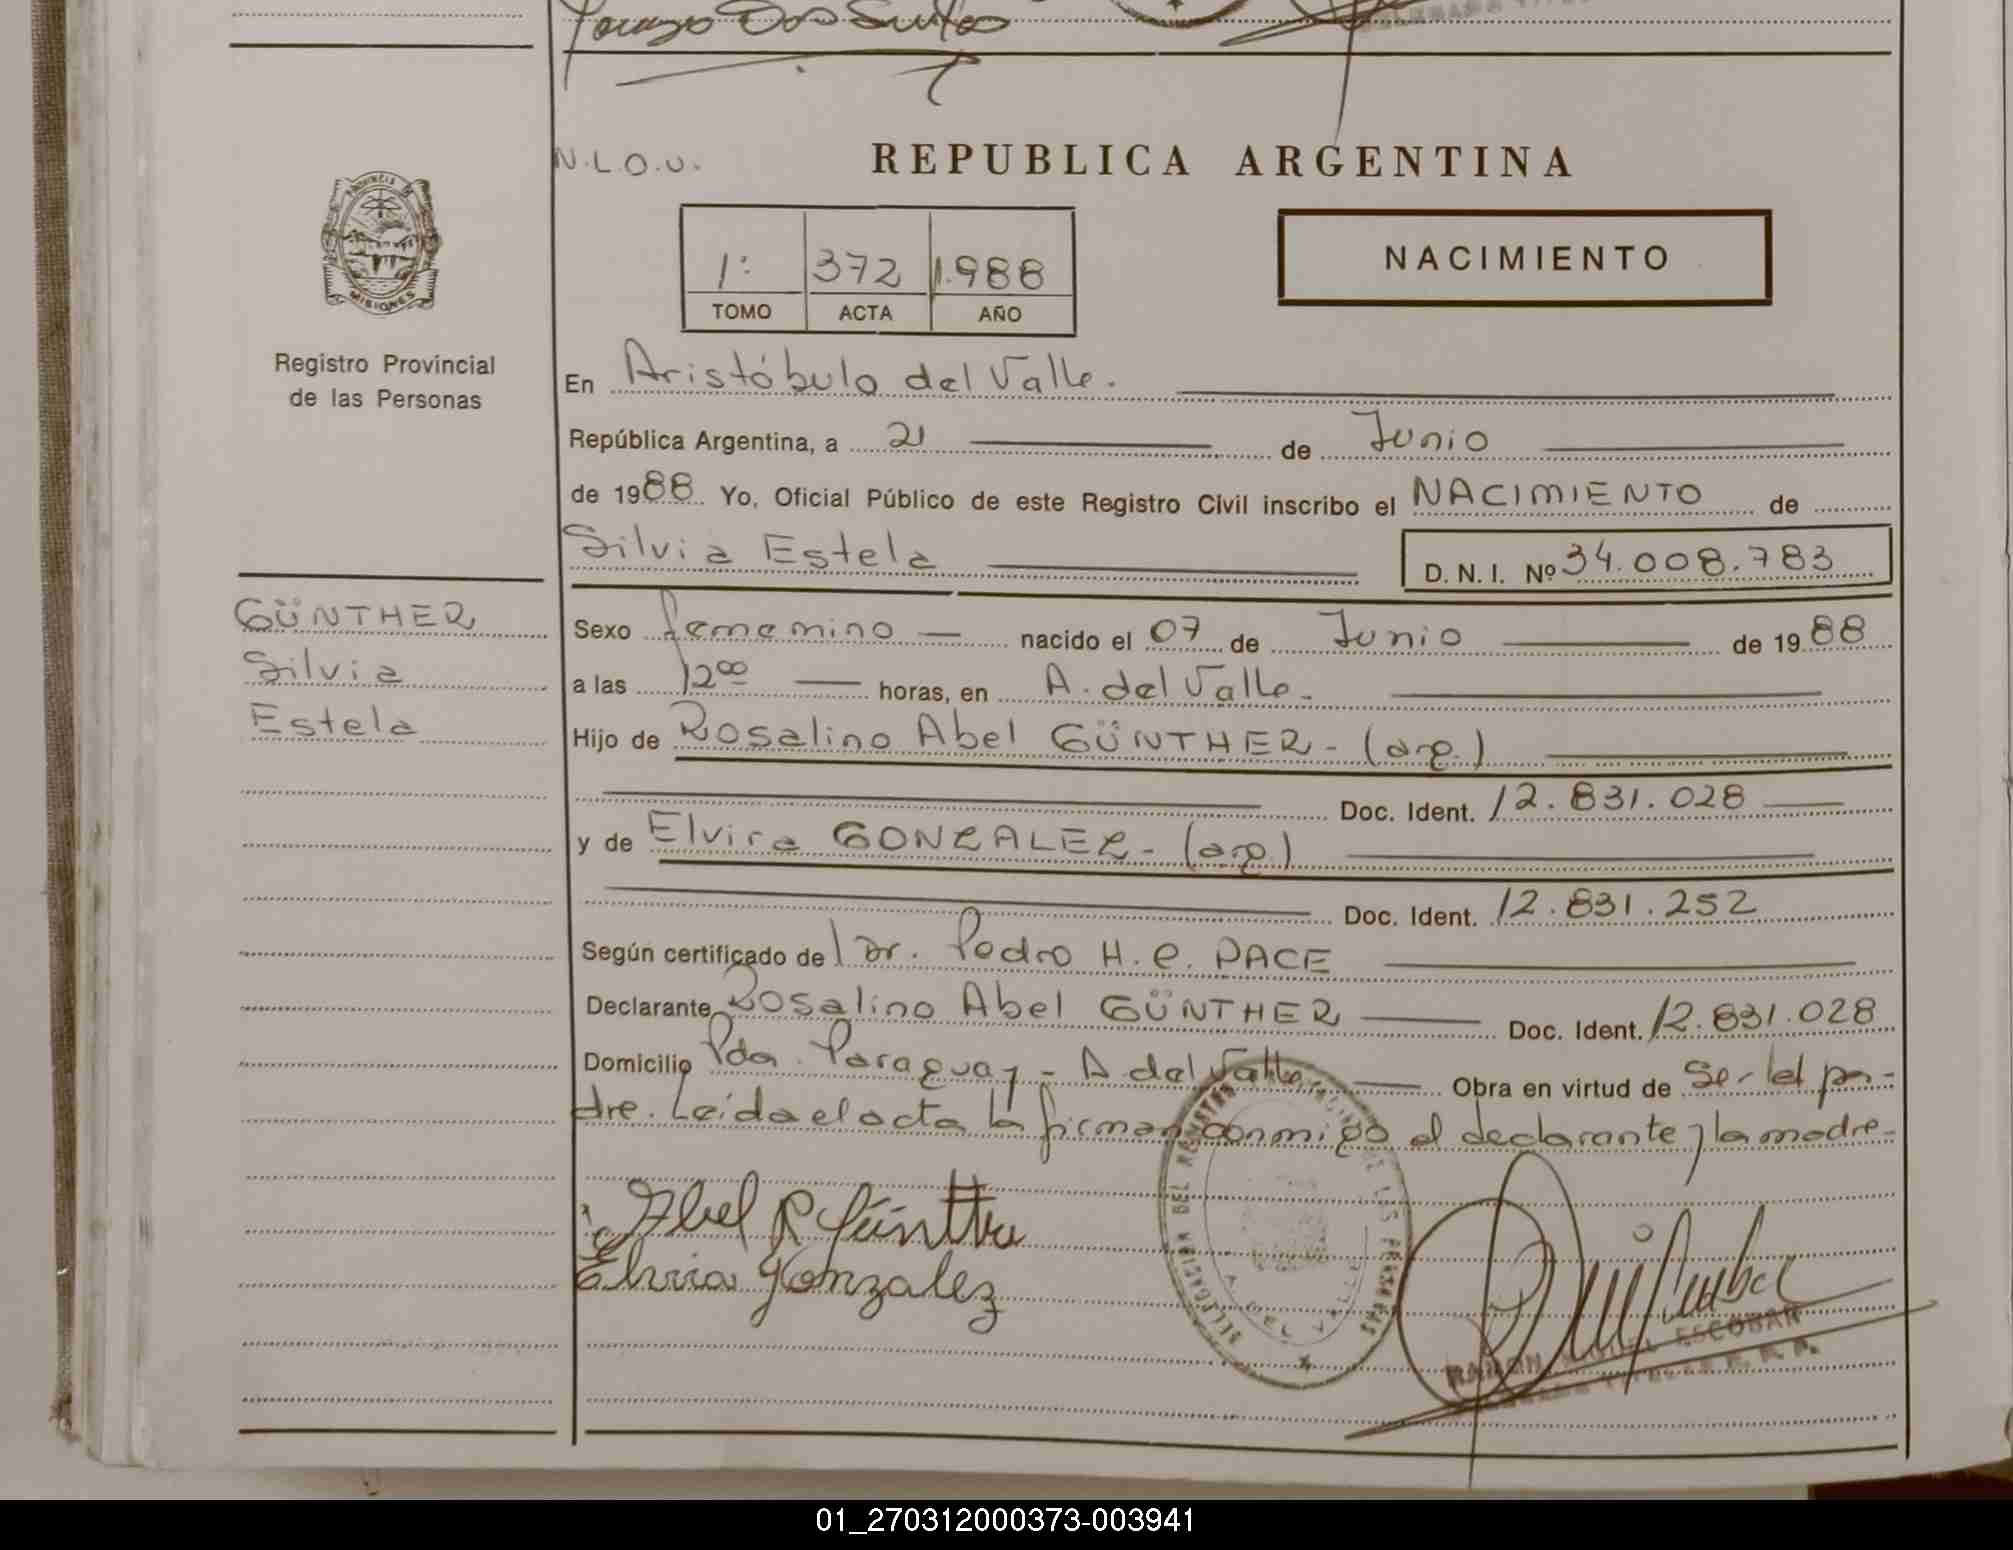 N.L.O.U.
REPUBLICA ARGENTINA
PROVINCIA DE MISIONES
1: 372 1.988
TOMO ACTA AÑO
NACIMIENTO
Registro Provincial
de las Personas
En Aristóbulo del Valle.
República Argentina, a 21 de Junio
de 1988 Yo, Oficial Público de este Registro Civil inscribo el NACIMIENTO de
Silvia Estela D. N. I. Nº 34.008.783
GÜNTHER
Silvia
Estela
Sexo femenino nacido el 07 de Junio de 1988
a las 12 00 horas, en A. del Valle.
Hijo de Rosalino Abel GÜNTHER - (arg.)
Doc. Ident. 12.831.028
y de Elvira GONZALEZ - (arg.)
Doc. Ident. 12.831.252
Según certificado del Dr. Pedro H. C. PACE
Declarante Rosalino Abel GÜNTHER Doc. Ident. 12.831.028
Domicilio Pda. Paraguay - A del Valle. Obra en virtud de Ser el pa-
dre. Leída el acta la firman conmigo el declarante y la madre-
Abel R Günther
Elvira Gonzalez
DELEGACION DEL REGISTRO PROVINCIAL DE LAS PERSONAS
A. DEL VALLE
RAMON MIGUEL ESCOBAR
01_270312000373-003941